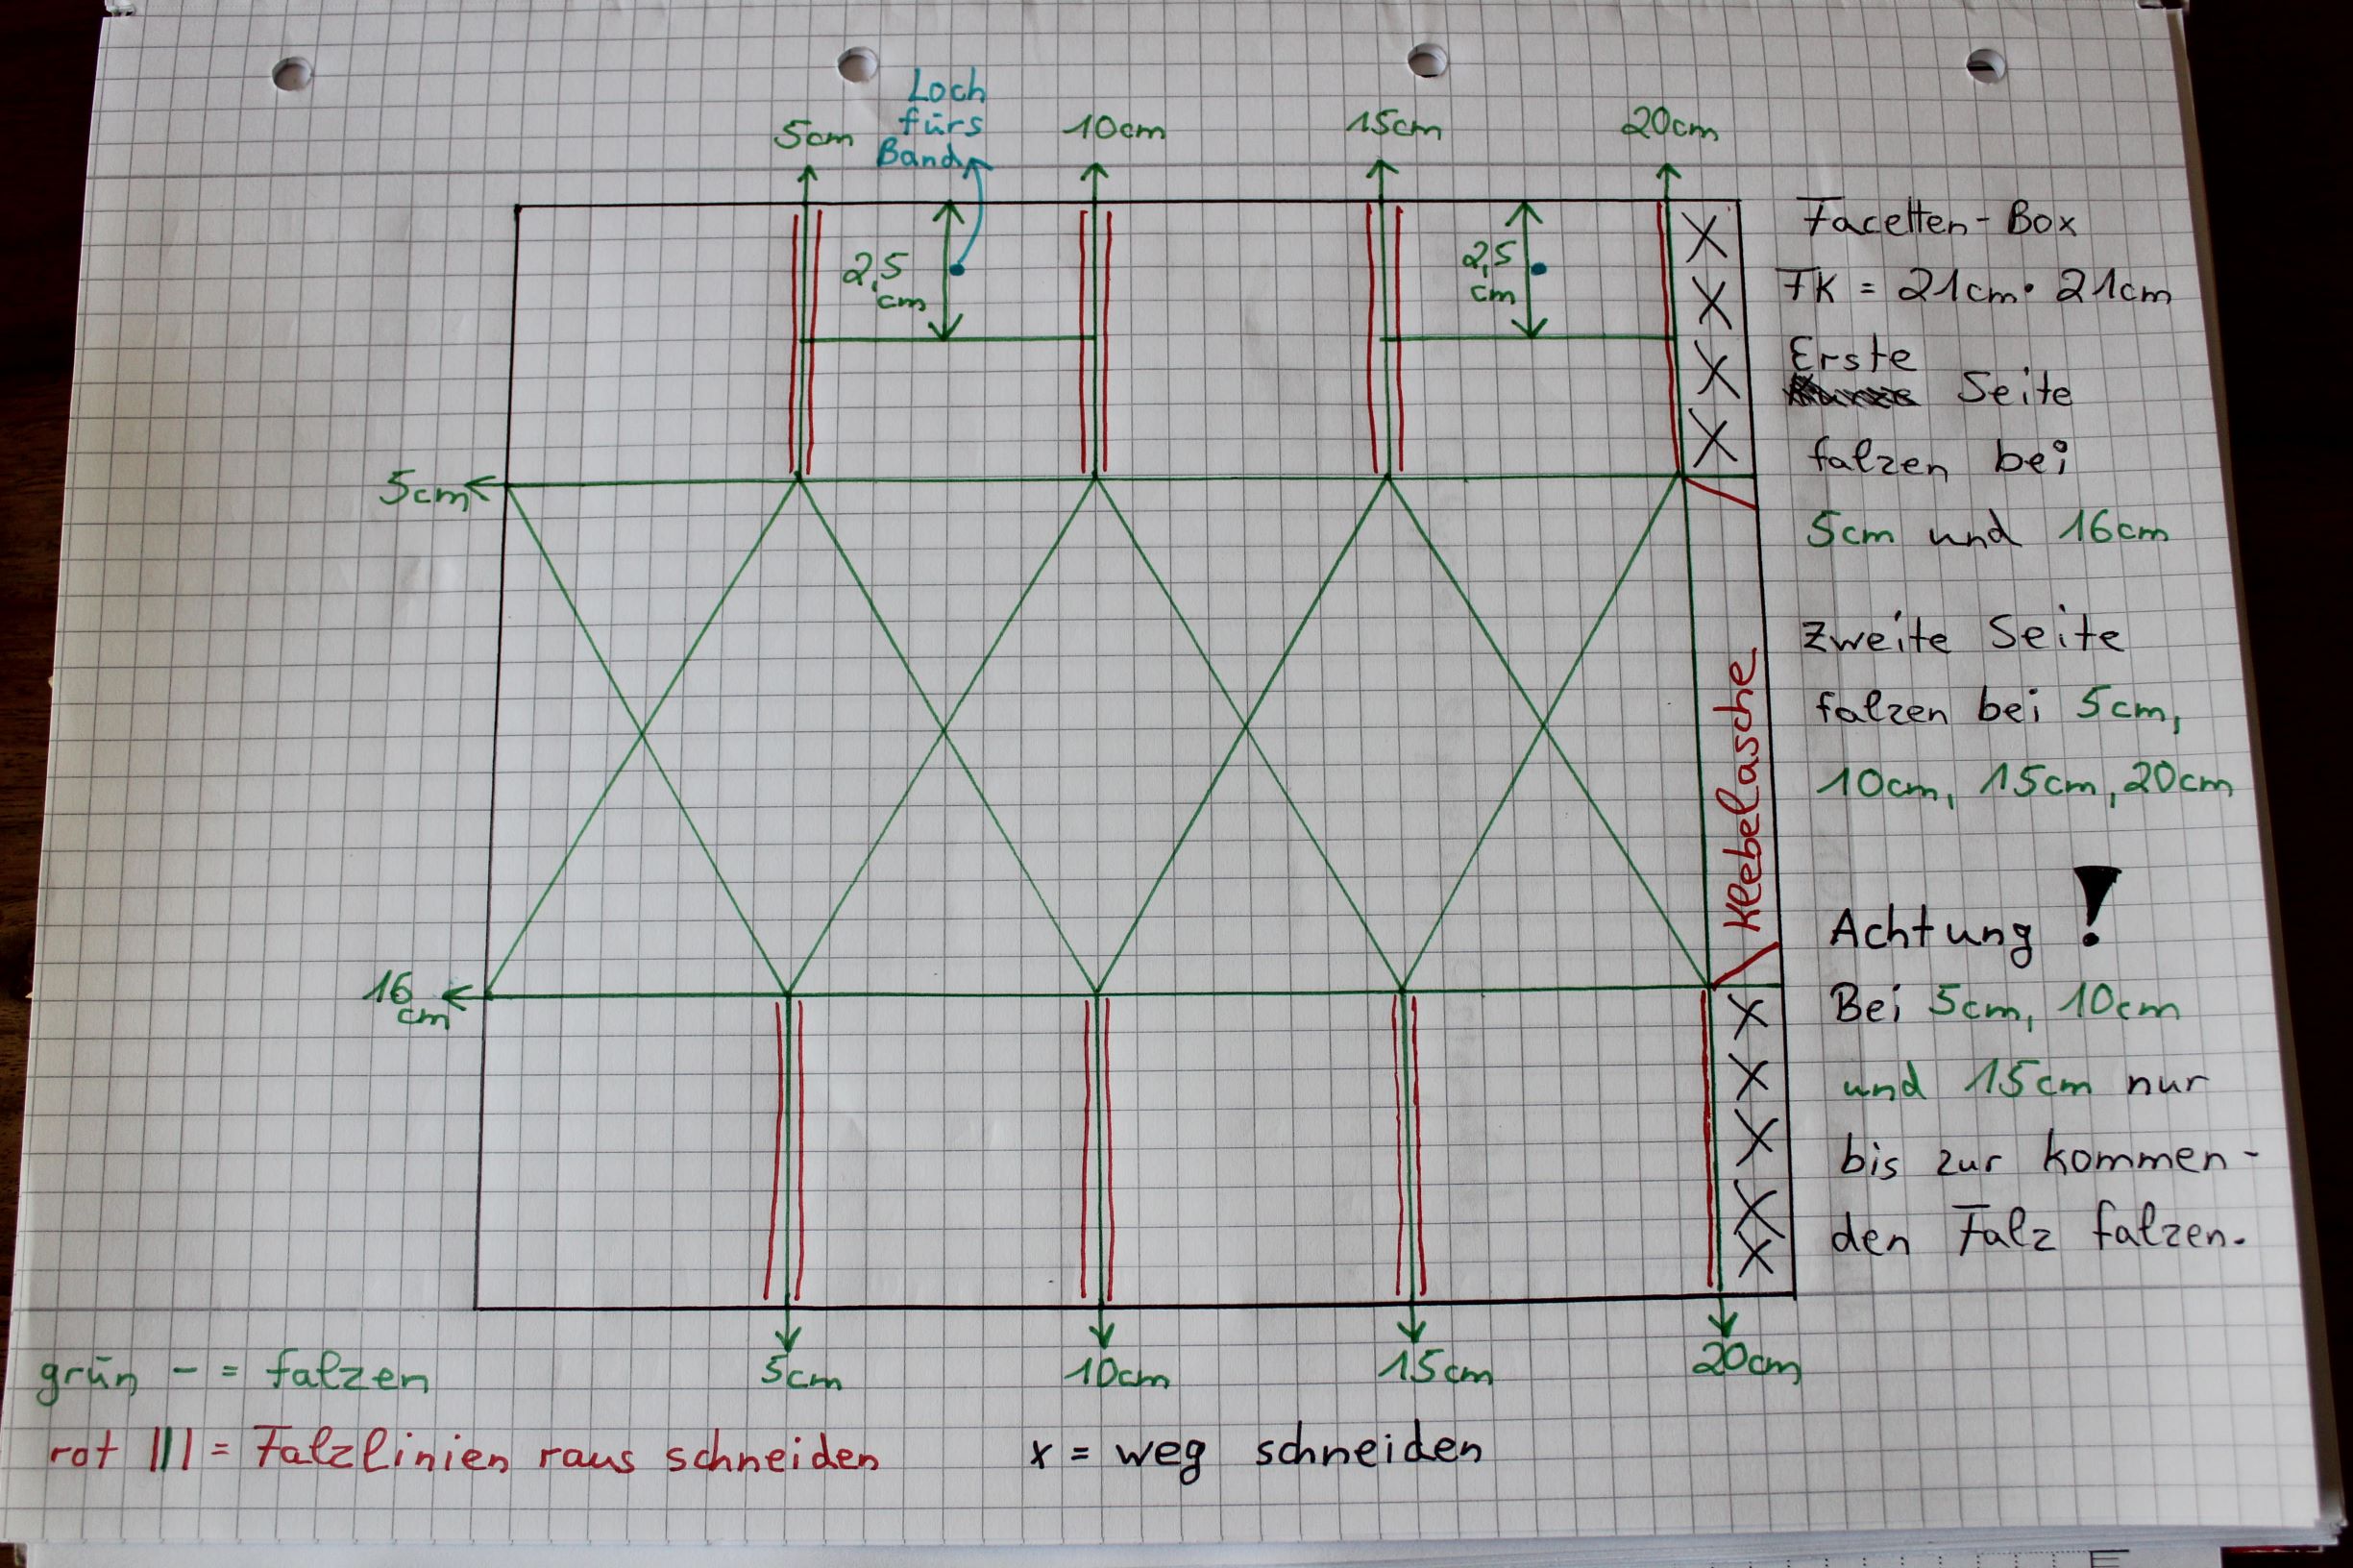 Loch
fürs
Band
5cm
10cm
15cm
20cm
2,5
cm
2,5
cm
X
X
X
X
5cm
16
cm
Klebelasche
X
X
X
X
X
5cm
10cm
15cm
20cm
Facetten-Box
FK = 21cm · 21cm
Erste
Seite
falzen bei
5cm und 16cm
Zweite Seite
falzen bei 5cm,
10cm, 15cm, 20cm
Achtung !
Bei 5cm, 10cm
und 15cm nur
bis zur kommen-
den Falz falzen.
grün - = falzen
rot ||| = Falzlinien raus schneiden
x = weg schneiden